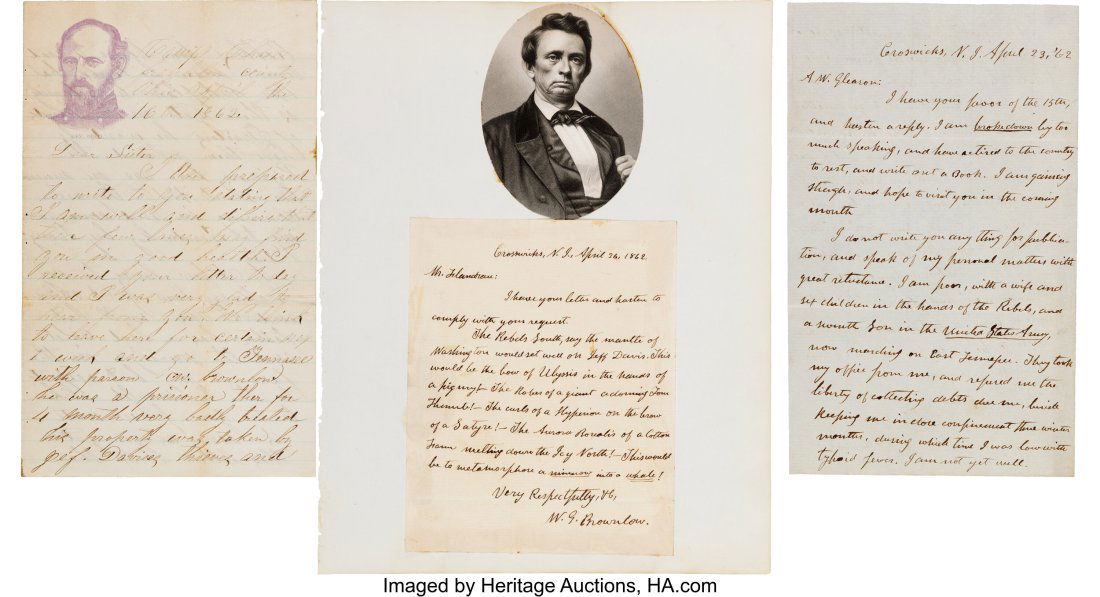 16th 1862
Dear Sister
I am prepared
to write to you stating that
I am well and
few lines find
you in good health I
received your letter
and I was very glad to
to leave here for certain
week and go to Tennessee
with parson Brownlow
he was a prisoner ther for
4 month very badly treated
his property was taken by
jef. Davises thieves and
Crosswicks, N. J., April 26, 1862.
Mr. Flandrau:
I have your letter and hasten to
comply with your request.
The Rebels South, say the mantle of
Washington would set well on Jeff Davis. This
would be the bow of Ulysis in the hands of
a pigmy!— The Robes of a giant adorning Tom
Thumb!— The curls of a Hyperion on the brow
of a Satyre!— The Aurora Borealis of a Cotton
Farm melting down the Icy North!— This would
be to metamorphose a minnow into a whale!
Very Respectfully, &c,
W. G. Brownlow.
Croswicks, N. J. April 23, '62
A W. Gleason:
I have your favor of the 15th,
and hasten a reply. I am broke down by too
much speaking, and have retired to the country
to rest, and write out a Book. I am gaining
strength, and hope to visit you in the coming
month.
I do not write you any thing for publica-
tion, and speak of my personal matters with
great reluctance. I am poor, with a wife and
six children in the hands of the Rebels, and
a seventh Son in the United States Army,
now marching on East Tennessee. They took
my office from me, and refused me the
liberty of collecting debts due me, beside
keeping me in close confinement three winter
months, during which time I was low with
typhoid fever. I am not yet well.
Imaged by Heritage Auctions, HA.com